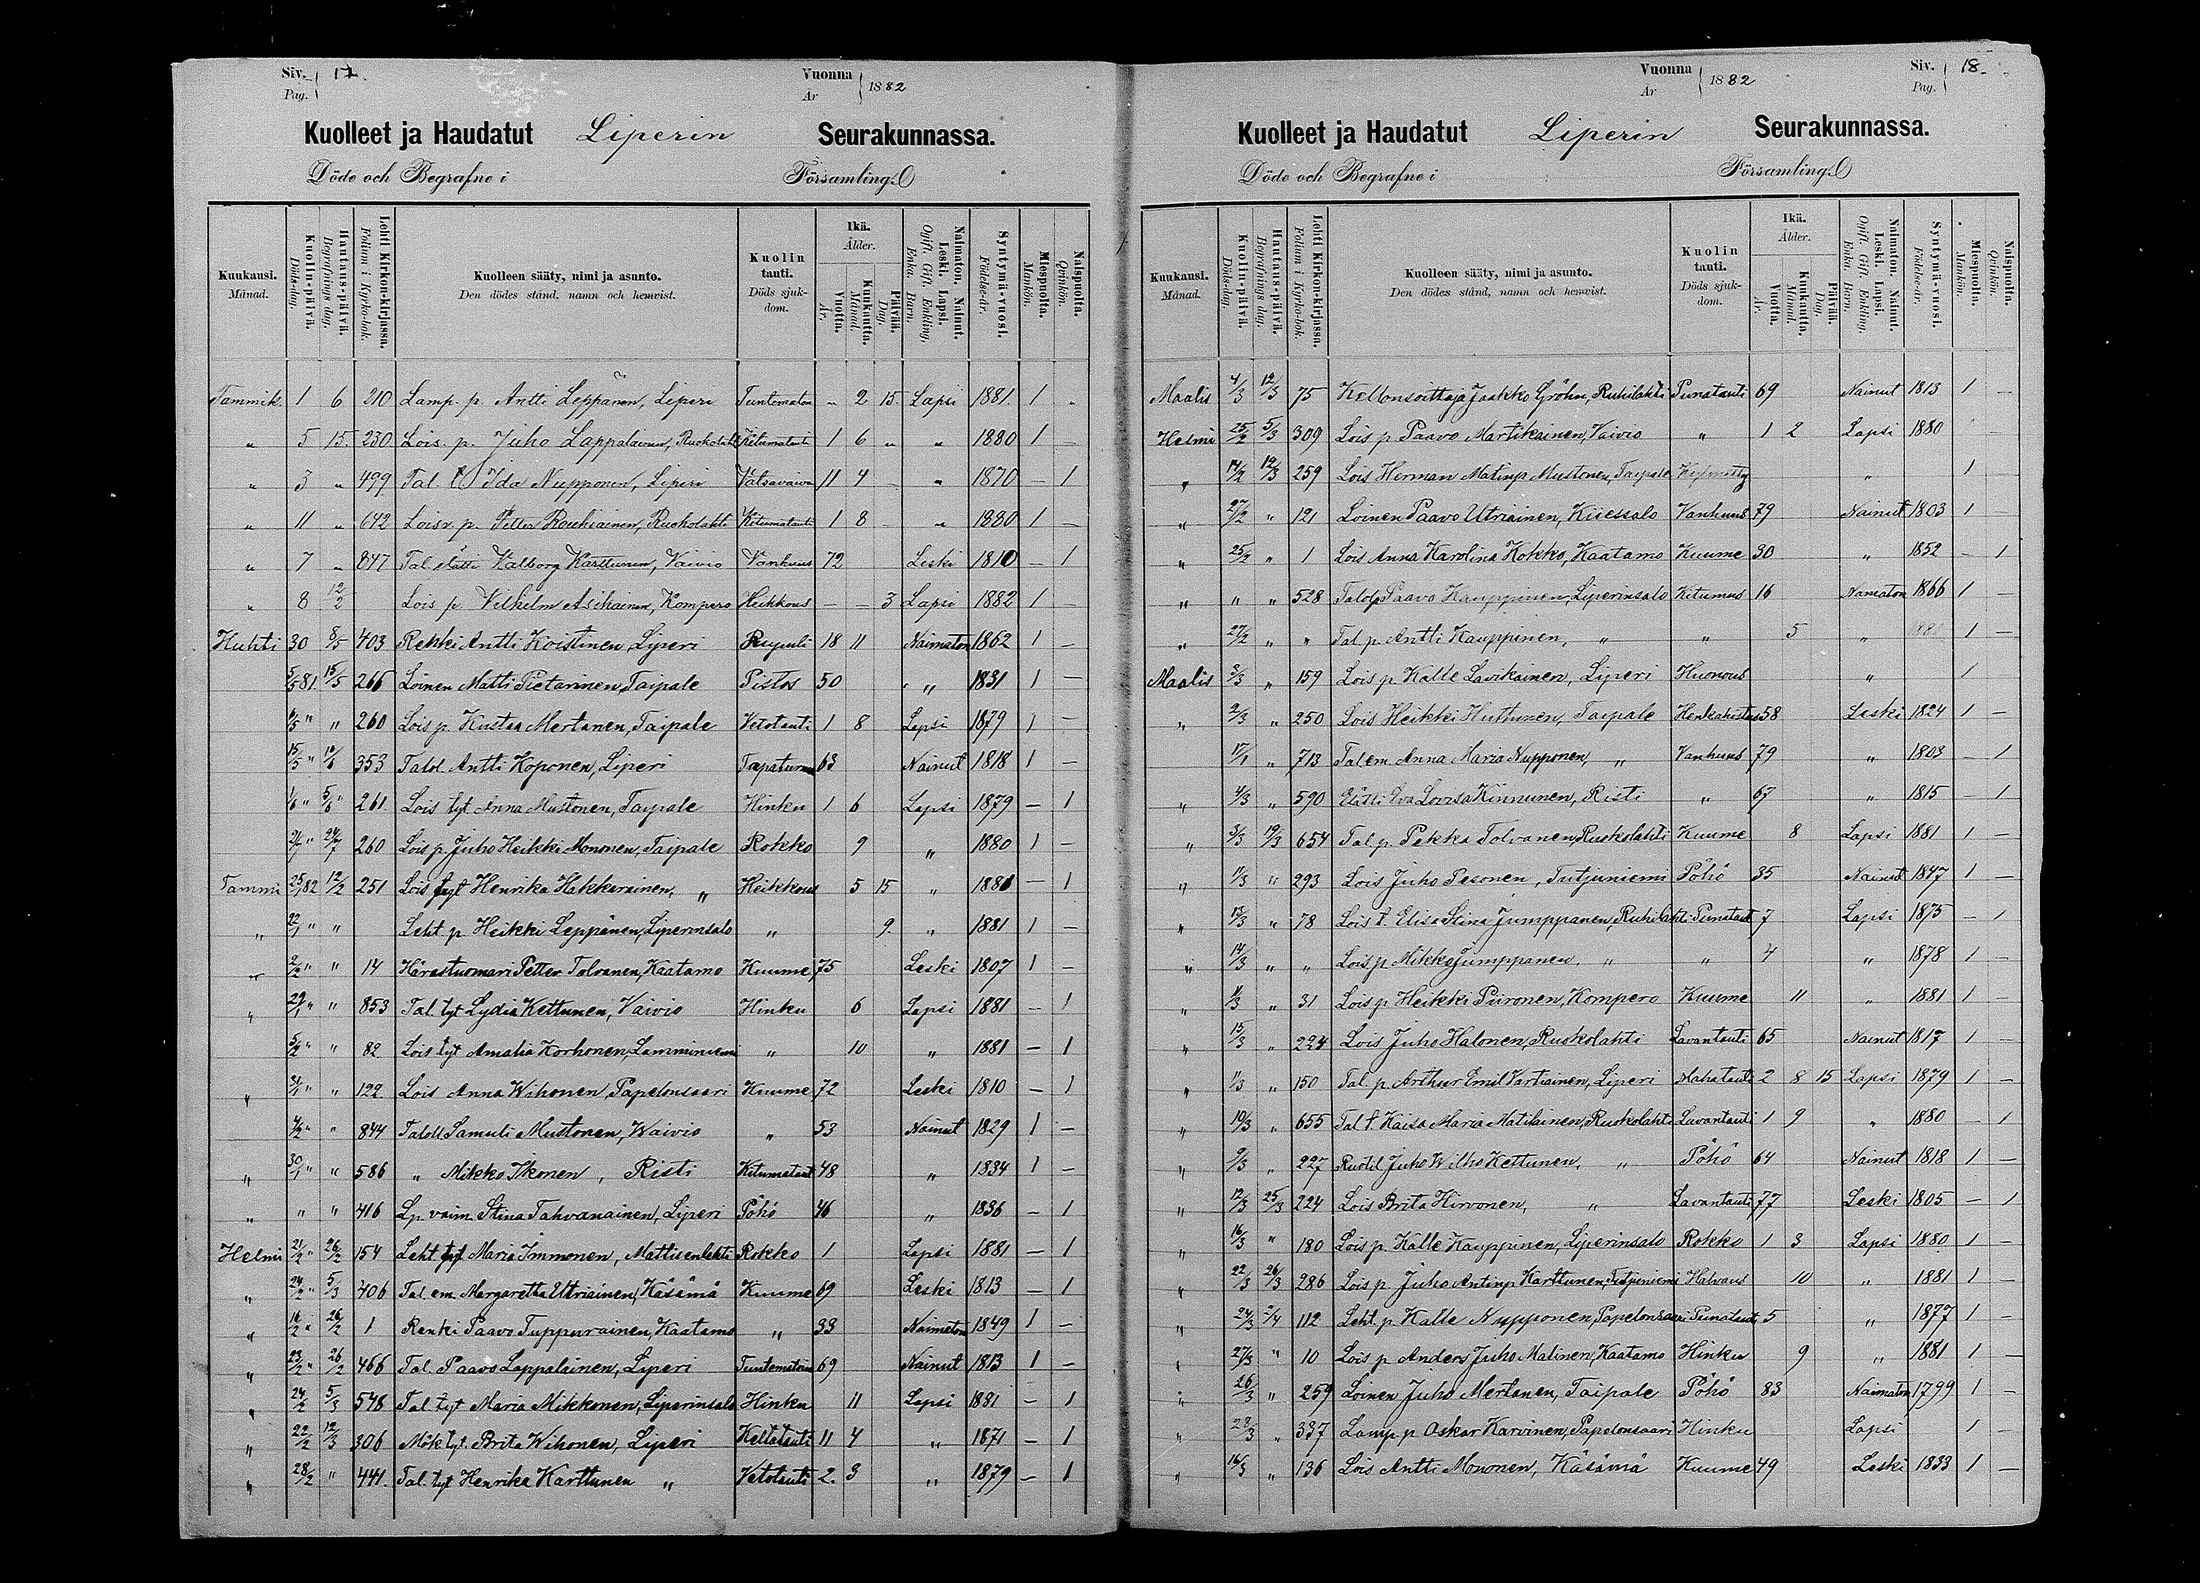 Siv. 17.
Pag.
Vuonna 1882
År
Kuolleet ja Haudatut Liperin Seurakunnassa.
Döde och Begrafne i Församling.
Kuukausi. Månad.
Kuolin-päivä. Döds-dag.
Hautaus-päivä. Begrafnings dag.
Lehti Kirkon-kirjassa. Folium i Kyrko-bok.
Kuolleen sääty, nimi ja asunto. Den dödes stånd, namn och hemvist.
Kuolin tauti. Döds sjuk-dom.
Ikä. Ålder.
Vuotta. År.
Kuukautta. Månad.
Päivää. Dag.
Naimaton. Nainut. Leski. Lapsi. Ogift. Gift. Enkling. Enka. Barn.
Syntymä-vuosi. Födelse-år.
Miespuolta. Mankön.
Naispuolta. Qvinkön.
Tammik. 1 6 210 Lamp. p. Antti Leppänen, Liperi Tuntematon " 2 15. Lapsi 1881. 1 "
" 5 15. 230 Lois. p. Juho Lappalainen, Ruokolahti Kitumatauti 1 6 " " 1880 1 —
" 3 " 499 Tal. t. Ida Nupponen, Liperi Vatsavaiva 11 4 — " 1870 — 1
" 11 " 642 Lois. p. Petter Rouhiainen, Ruokolahti Kitumatauti 1 8 — " 1880 1 —
" 7 " 847 Tal. elätti Valborg Karttunen, Vaivio Vanhuus 72 Leski 1810 — 1
" 8 12/2 Lois p. Vilhelm Asikainen, Kompero Heikkous — — 3 Lapsi 1882 1 —
Huhti 30 8/5 403 Renki Antti Koistinen, Liperi Rupuli 18 11 Naimaton 1862 1 —
5/5 81. 15/5 266 Loinen Matti Pietarinen, Taipale Pistos 50 " 1831 1 —
6/5 " " 260 Lois p. Kustaa Mertanen, Taipale Vetotauti 1 8 Lapsi 1879 1 —
15/5 " 353 Talol. Antti Koponen, Liperi Tapaturma 63 Nainut 1818 1 —
1/6 " 5/6 " 261. Lois tyt. Anna Mustonen, Taipale Hinku 1 6 Lapsi 1879 — 1
260 Lois p. Juho Heikki Mononen, Taipale Rokko 9 " 1880 1 —
Tammi 25/1 82 12/2 251 Lois tyt Henrika Hakkarainen, " Heikkous 5 15 " 1881 — 1
" 22/1 " " Leht p. Heikki Leppänen, Liperinsalo " 9. " 1881 1 —
" 2/2 " " 14 Härastuomari Petter Tolvanen, Kaatamo Kuume 75 Leski 1807 1 —
" 29/1 " " 853 Tal. tyt Lydia Kettunen, Vaivio Hinku 6 Lapsi 1881 — 1
" 5/2 " " 82 Lois tyt Amalia Korhonen, Lamminniemi " 10 " 1881 — 1
" 31/1 " " 122 Lois Anna Wihonen, Papelonsaari Kuume 72 Leski 1810 — 1
" 4/2 " " 844 Taloll Samuli Mustonen, Waivio " 53 Nainut 1829 1 —
" 30/1 " " 586 " Mikko Ikonen, Risti Kitumataut 48 " 1834 1 —
" " " 416 Lp. vaim. Stina Tahvanainen, Liperi Pöhö 46 " 1836 — 1
Helmi 21/2 " 26/2 154 Leht tyt Maria Immonen, Mattisenlahti Rokko 1 Lapsi 1881 — 1
" 24/2 " 5/3 406 Tal. em. Margaretha Utriainen, Käsämä Kuume 69 Leski 1813 — 1
" 16/2 " 26/2 1 Renki Paavo Tuppurainen, Kaatamo " 33 Naimaton 1849 1 —
" 23/2 " 26/2 466 Tal. Paavo Lappalainen, Liperi Tuntematoin 69 Nainut 1813 1 —
" 24/2 5/3 548 Tal. tyt Maria Mikkonen, Liperinsalo Hinku 11 Lapsi 1881 — 1
" 22/2 12/3 306 Mök tyt. Brita Wihonen, Liperi Keltatauti 11 4 " 1871 — 1
" 28/2 " 441. Tal. tyt Henrika Karttunen " Vetotauti 2. 3 " 1879 — 1
Siv. 18.
Pag.
Vuonna 1882
År
Kuolleet ja Haudatut Liperin Seurakunnassa.
Döde och Begrafne i Församling.
Kuukausi. Månad.
Kuolin-päivä. Döds-dag.
Hautaus-päivä. Begrafnings dag.
Lehti Kirkon-kirjassa. Folium i Kyrko-bok.
Kuolleen sääty, nimi ja asunto. Den dödes stånd, namn och hemvist.
Kuolin tauti. Döds sjuk-dom.
Ikä. Ålder.
Vuotta. År.
Kuukautta. Månad.
Päivää. Dag.
Naimaton. Nainut. Leski. Lapsi. Ogift. Gift. Enkling. Enka. Barn.
Syntymä-vuosi. Födelse-år.
Miespuolta. Mankön.
Naispuolta. Qvinkön.
Maalis 4/3 12/3 75 Kellonsoittaja Jaakko Gröhn, Ruhilahti Punatauti 69 Nainut 1813 1 —
Helmi 25/2 5/3 309 Lois p Paavo Martikainen, Vaivio " 1 2 Lapsi 1880 —
" 14/2 12/3 259 Lois Herman Matinp. Mustonen, Taipale " 1
" 27/2 " 121 Loinen Paavo Utriainen, Kuessalo Vanhuus 79 Nainut 1803 1 —
" 25/2 " 1 Lois Anna Karolina Kokko, Kaatamo Kuume 30 " 1852 — 1
" " " 528 Talolp Paavo Kauppinen, Liperinsalo Kitumus 16 Namaton 1866 1 —
" 27/2 " " Tal. p. Antti Kauppinen, " " 5 " 1881 1 —
Maalis 3/3 " 159 Lois p Kalle Lavikainen, Liperi Huonous " 1
" 2/3 " 250 Lois Heikki Huttunen, Taipale Henkahistus 58 Leski 1824 1 —
" 17/1 " 713 Tal em. Anna Maria Nupponen, " Vanhuus 79 " 1803 — 1
" 4/3 " 590 Elätti Eva Lovisa Kinnunen, Risti " 67 " 1815 — 1
" 3/3 19/3 654 Tal. p. Pekka Tolvanen, Ruokolahti Kuume 8 Lapsi 1881 1 —
" 11/3 " 293 Lois Juho Pesonen, Tutjuniemi Pöhö 35 Nainut 1847 1 —
" 13/3 " 78 Lois t. Elisa Stina Jumppanen, Ruhilahti Punataut 7 Lapsi 1875 — 1
" 14/3 " " Lois p Mikko Jumppanen, " " 4 " 1878 1 —
" " 31 Lois p. Heikki Piironen, Kompero Kuume 11 " 1881 1 —
" 15/3 " 224 Lois Juho Halonen, Ruokolahti Lavantauti 65 Nainut 1817 1 —
" 11/3 " 150 Tal. p. Arthur Emil Vartiainen, Liperi Mahatauti 2 8 15 Lapsi 1879 1 —
" 10/3 " 655 Tal t. Kaisa Maria Matilainen, Ruokolahti Lavantauti 1 9 " 1880 — 1
" 9/3 " 227 Ruotil Juho Wilho Kettunen, " Pöhö 64 Nainut 1818 1 —
" 12/3 25/3 224 Lois Brita Hirvonen, " Lavantauti 77 Leski 1805 — 1
" 16/3 " 180 Lois p. Kalle Kauppinen, Liperinsalo Rokko 1 3 Lapsi 1880 1 —
" 22/3 26/3 286 Lois p. Juho Antinp Karttunen, Tutjuniemi Halvaus 10 " 1881 1 —
" 24/3 2/4 112 Leht. p. Kalle Nupponen, Papelonsaari Punataut 5 " 1877 1 —
" 27/3 " 10 Lois p Anders Juho Malinen, Kaatamo Hinku 9 " 1881 1 —
" 26/3 " 259 Loinen Juho Mertanen, Taipale Pöhö 83 Naimaton 1799 1 —
" 28/3 " 337 Lamp. p. Oskar Karvinen, Papelonsaari Hinku Lapsi 1 —
" 16/3 " 136 Lois Antti Mononen, Käsämä Kuume 49 Leski 1833 1 —